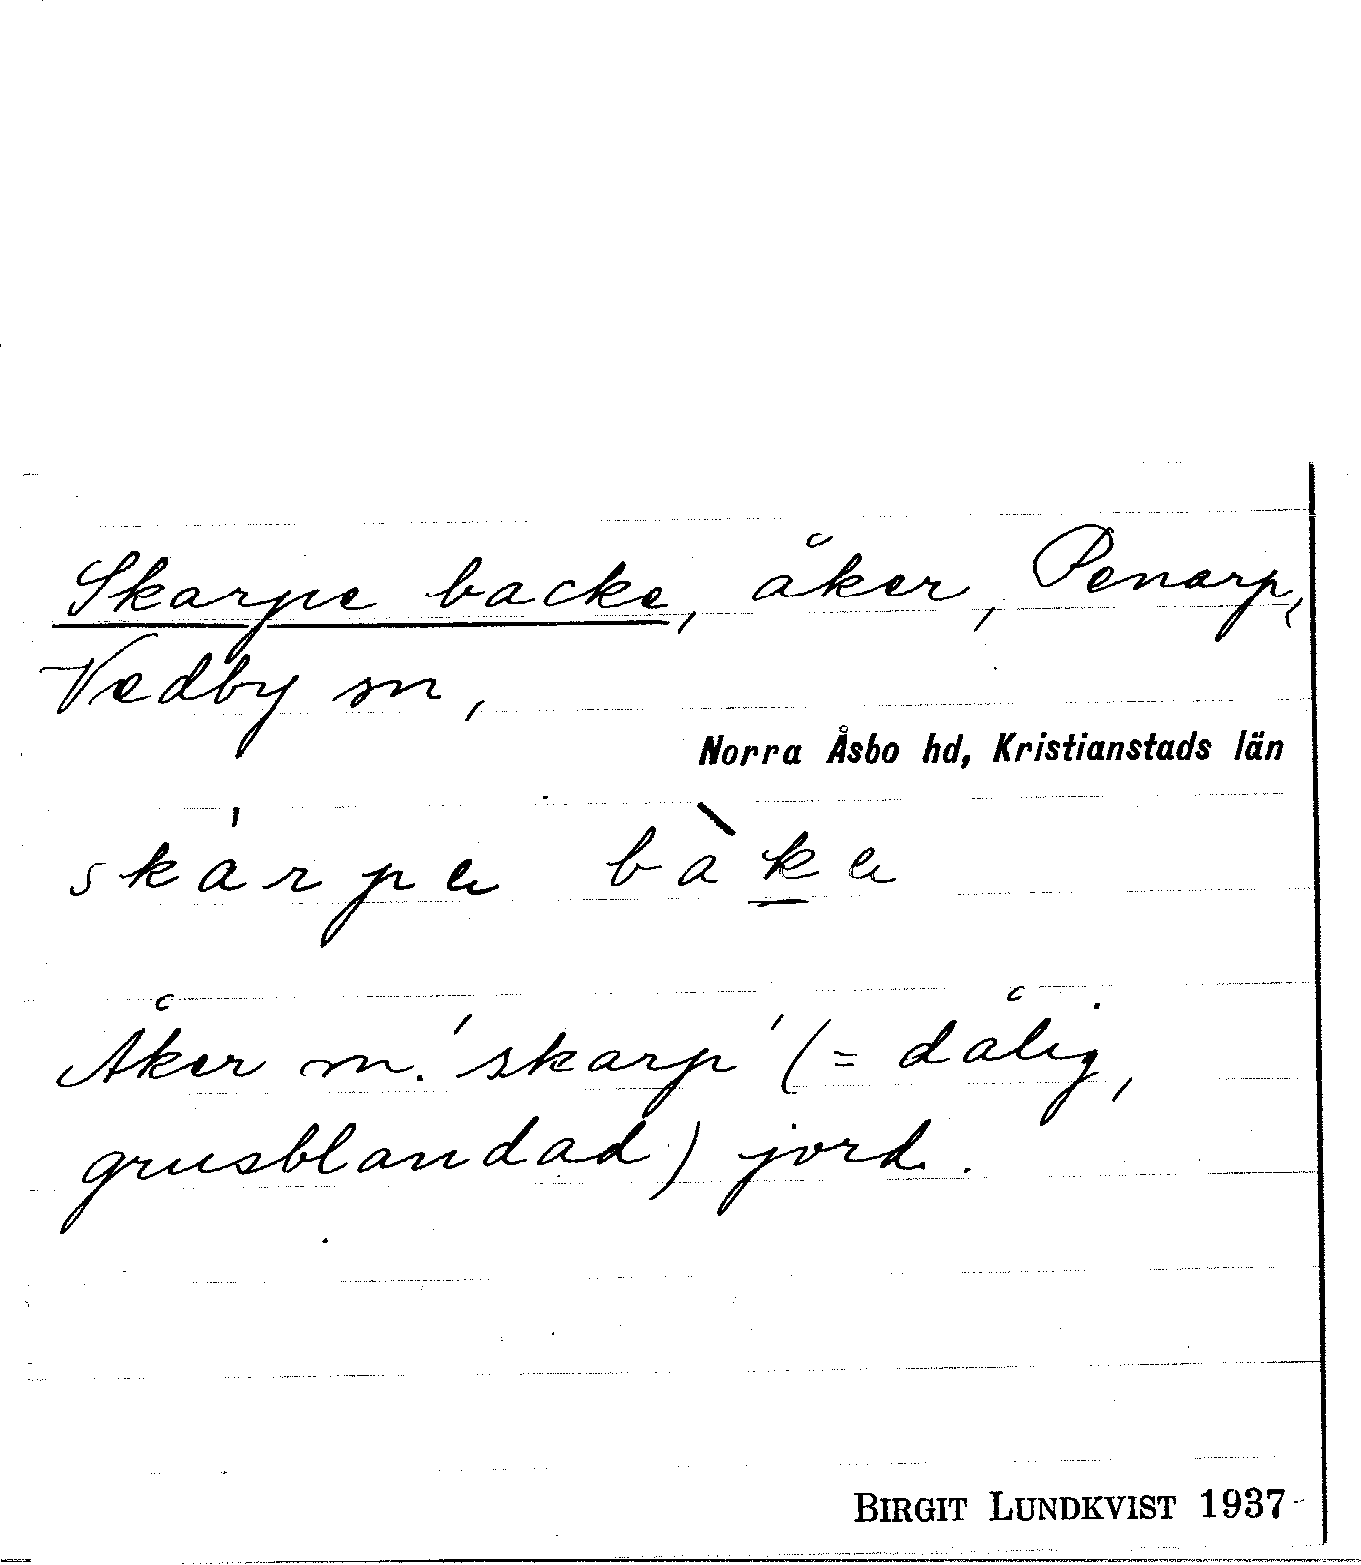 Skarpe backe, åker, Penarp,
Vedby sn,
Norra Åsbo hd, Kristianstads län
skárpɐ bàk̲ɐ
Åker m. 'skarp' (= dålig,
grusblandad) jord.
BIRGIT LUNDKVIST 1937